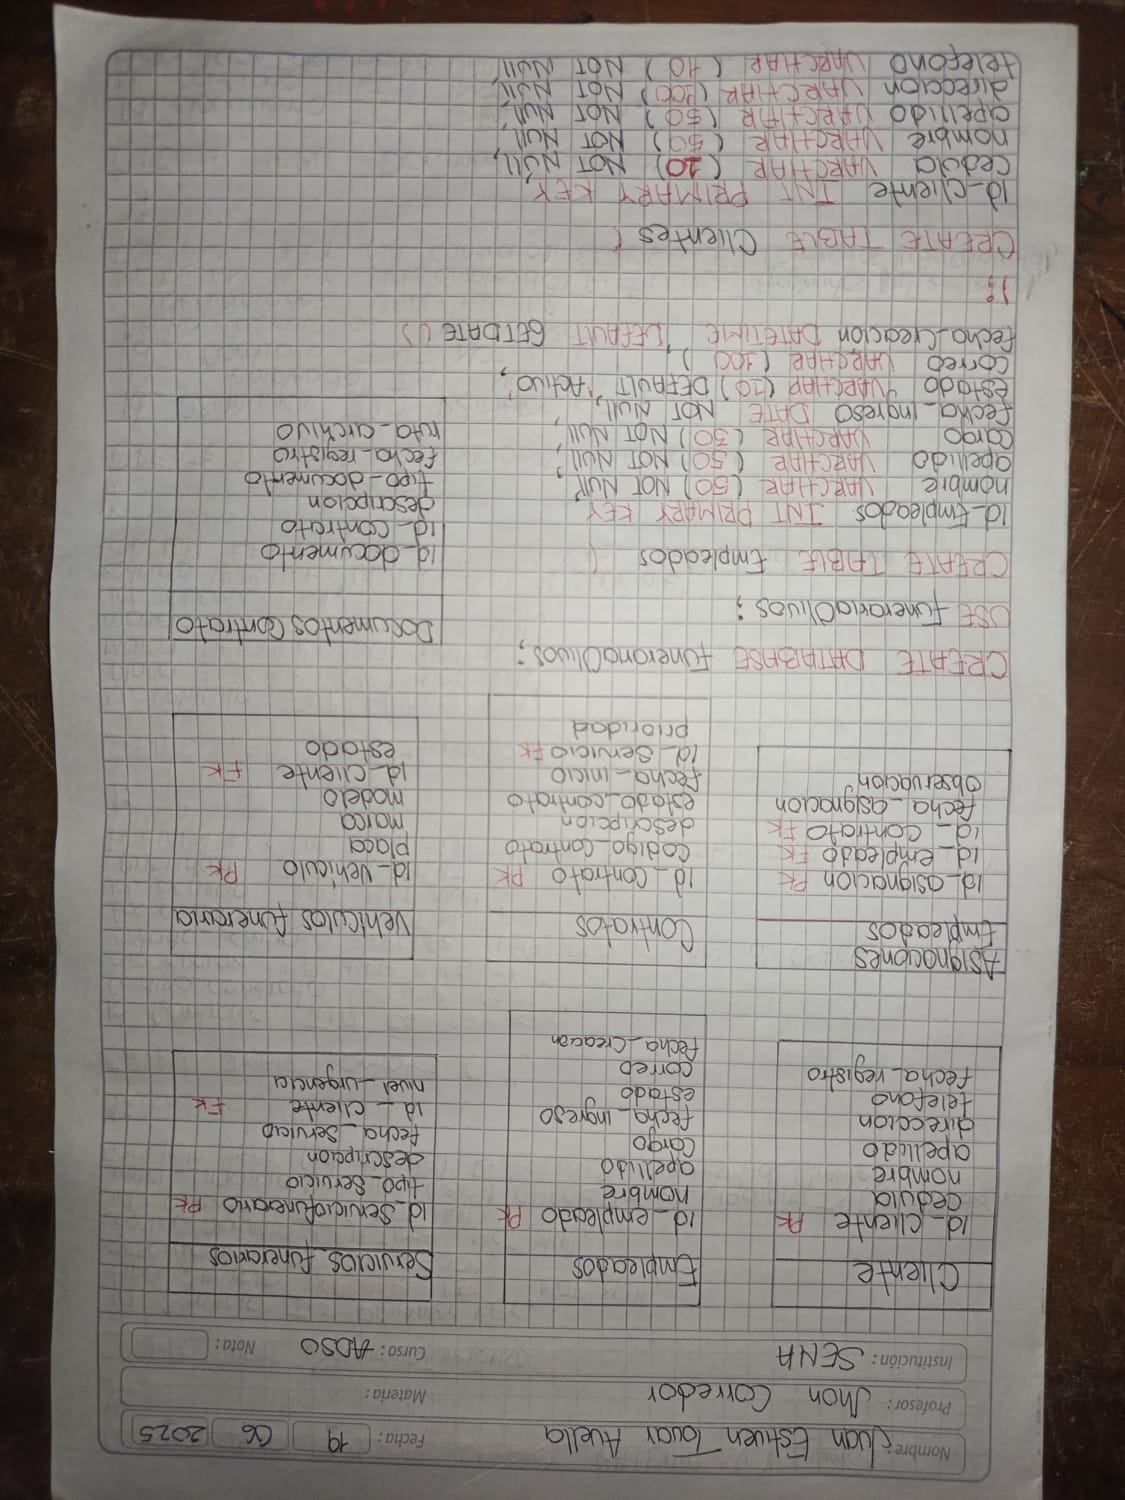 Nombre: Juan Estiven Tovar Avella Fecha: 19 06 2025
Profesor: Jhon Corredor Materia:
Institución: SENA Curso: ADSO Nota:
Cliente
id_cliente PK
cedula
nombre
apellido
direccion
telefono
fecha_registro
Empleados
id_empleado PK
nombre
apellido
cargo
fecha_ingreso
estado
correo
fecha_creacion
Servicios_funerarios
id_serviciofunerario PK
tipo_servicio
descripcion
fecha_servicio
id_cliente FK
nivel_urgencia
Asignaciones
Empleados
id_asignacion PK
id_empleado FK
id_contrato FK
fecha_asignacion
observacion
Contratos
id_contrato PK
codigo_contrato
descripcion
estado_contrato
fecha_inicio
id_servicio FK
prioridad
Vehiculos funeraria
id_vehiculo PK
placa
marca
modelo
id_cliente FK
estado
CREATE DATABASE funerariaOlivos;
USE funerariaOlivos;
CREATE TABLE Empleados (
id_Empleados INT PRIMARY KEY
nombre VARCHAR (50) NOT Null,
apellido VARCHAR (50) NOT Null,
cargo VARCHAR (50) NOT Null,
fecha_ingreso DATE NOT Null,
estado VARCHAR (10) DEFAULT 'Activo',
correo VARCHAR (100),
fecha_creacion DATETIME, DEFAULT GETDATE()
);
DocumentosContrato
id_documento
id_contrato
descripcion
tipo_documento
fecha_registro
ruta_archivo
CREATE TABLE Clientes (
id_cliente INT PRIMARY KEY,
cedula VARCHAR (20) NOT Null,
nombre VARCHAR (50) NOT Null,
apellido VARCHAR (50) NOT Null,
direccion VARCHAR (200) NOT Null,
telefono VARCHAR (10) NOT Null,